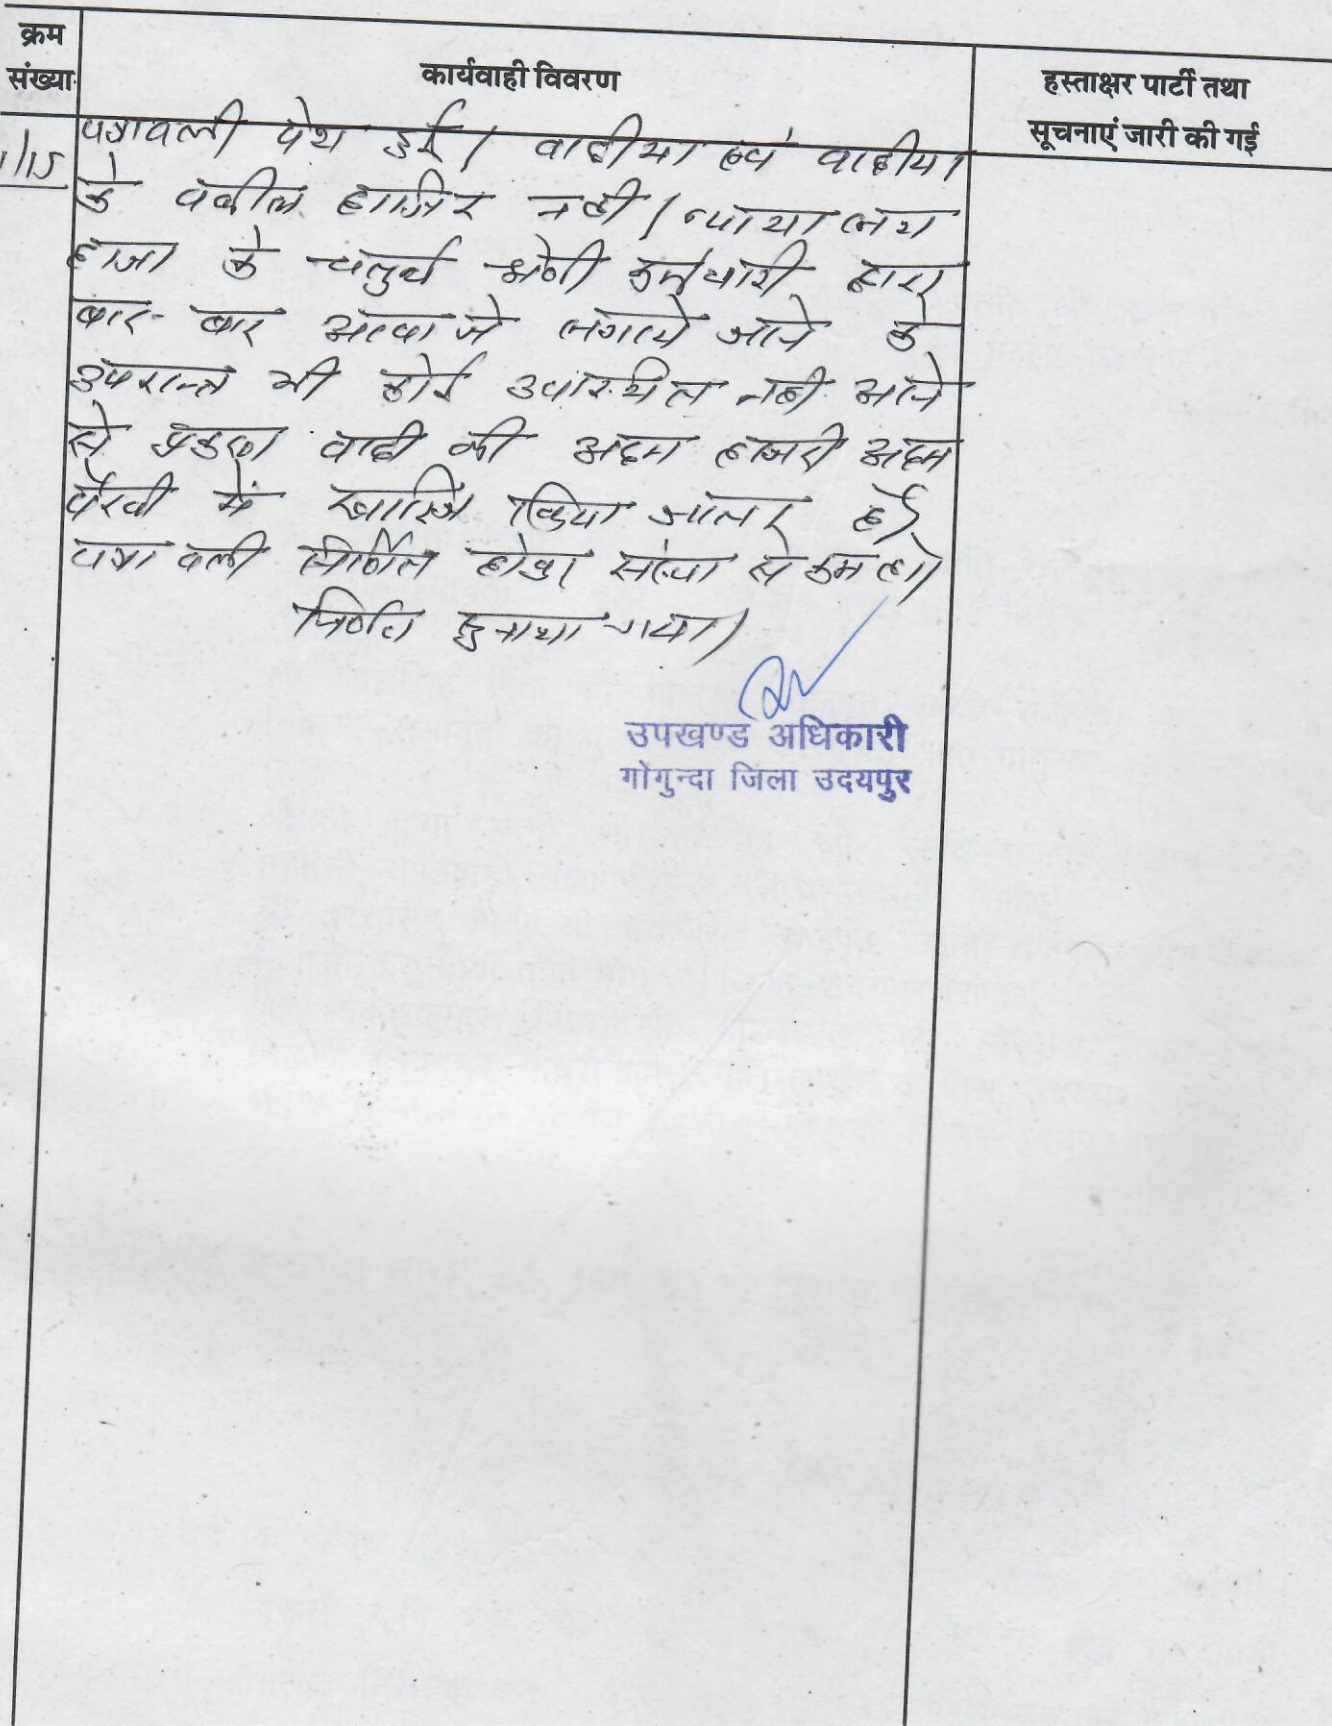 क्रम
संख्या
कार्यवाही विवरण
हस्ताक्षर पार्टी तथा
सूचनाएं जारी की गई
1/15
पत्रावली पेश हुई। वादीया एवं वादीया
के वकील हाजिर नही। न्यायालय
हाजा के चतुर्थ श्रेणी कर्मचारी द्वारा
बार-बार आवाजे लगाये जाने के
उपरान्त भी कोई उपस्थित नही आने
से प्रकरण वादी की अदम हाजरी अदम
पैरवी में खारिज किया जाता है।
पत्रावली निर्णित होकर संख्या से कम हो।
निर्णय सुनाया गया।
उपखण्ड अधिकारी
गोगुन्दा जिला उदयपुर